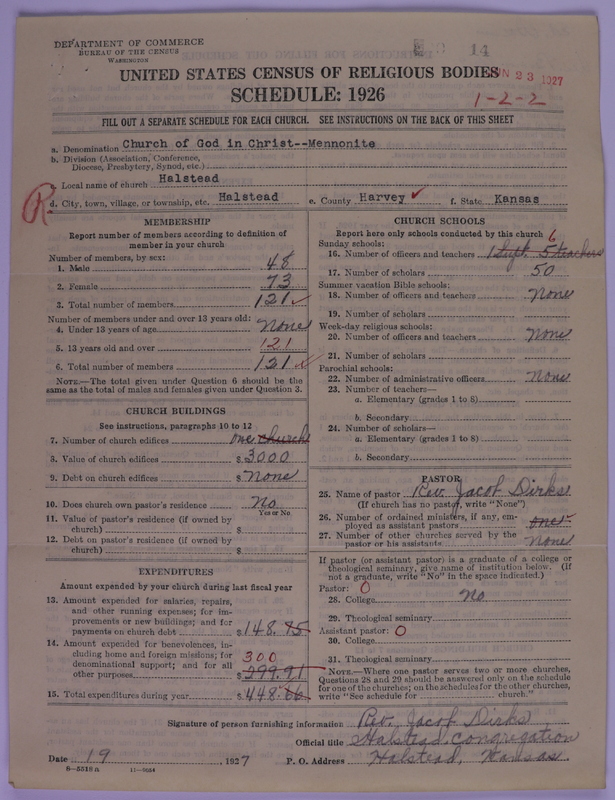 DEPARTMENT OF COMMERCE
BUREAU OF THE CENSUS
WASHINGTON
14
UNITED STATES CENSUS OF RELIGIOUS BODIES
JUN 23 1927
SCHEDULE: 1926
1-2-2
FILL OUT A SEPARATE SCHEDULE FOR EACH CHURCH. SEE INSTRUCTIONS ON THE BACK OF THIS SHEET
a. Denomination Church of God in Christ--Mennonite
b. Division (Association, Conference,
Diocese, Presbytery, Synod, etc.)
c. Local name of church Halstead
R
d. City, town, village, or township, etc. Halstead e. County Harvey ✓ f. State Kansas
MEMBERSHIP
Report number of members according to definition of
member in your church
Number of members, by sex:
1. Male 48
2. Female 73
3. Total number of members 121 ✓
Number of members under and over 13 years old:
4. Under 13 years of age none
5. 13 years old and over 121
6. Total number of members 121 ✓
NOTE.—The total given under Question 6 should be the
same as the total of males and females given under Question 3.
CHURCH BUILDINGS
See instructions, paragraphs 10 to 12
7. Number of church edifices one church
8. Value of church edifices $3000
9. Debt on church edifices $None
10. Does church own pastor's residence No
Yes or No
11. Value of pastor's residence (if owned by
church) $
12. Debt on pastor's residence (if owned by
church) $
EXPENDITURES
Amount expended by your church during last fiscal year
13. Amount expended for salaries, repairs,
and other running expenses; for im-
provements or new buildings; and for
payments on church debt $148.75
14. Amount expended for benevolences, in-
cluding home and foreign missions; for
denominational support; and for all
other purposes $299.91
300
15. Total expenditures during year $448.66
CHURCH SCHOOLS
Report here only schools conducted by this church
6
Sunday schools:
16. Number of officers and teachers 1 Supt. 5 teachers
17. Number of scholars 50
Summer vacation Bible schools:
18. Number of officers and teachers None
19. Number of scholars
Week-day religious schools:
20. Number of officers and teachers None
21. Number of scholars
Parochial schools:
22. Number of administrative officers None
23. Number of teachers—
a. Elementary (grades 1 to 8)
b. Secondary
24. Number of scholars—
a. Elementary (grades 1 to 8)
b. Secondary
PASTOR
25. Name of pastor Rev. Jacob Dirks
(If church has no pastor, write "None")
26. Number of ordained ministers, if any, em-
ployed as assistant pastors one
27. Number of other churches served by the
pastor or his assistants None
If pastor (or assistant pastor) is a graduate of a college or
theological seminary, give name of institution below. (If
not a graduate, write "No" in the space indicated.)
Pastor: 0
28. College No
29. Theological seminary
Assistant pastor: 0
30. College
31. Theological seminary
NOTE.—Where one pastor serves two or more churches,
Questions 28 and 29 should be answered only on the schedule
for one of the churches; on the schedules for the other churches,
write "See schedule for church."
Signature of person furnishing information Rev. Jacob Dirks
Official title Halstead Congregation
Date 19, 1927 P. O. Address Halstead, Kansas
8—5018 a 11—9554